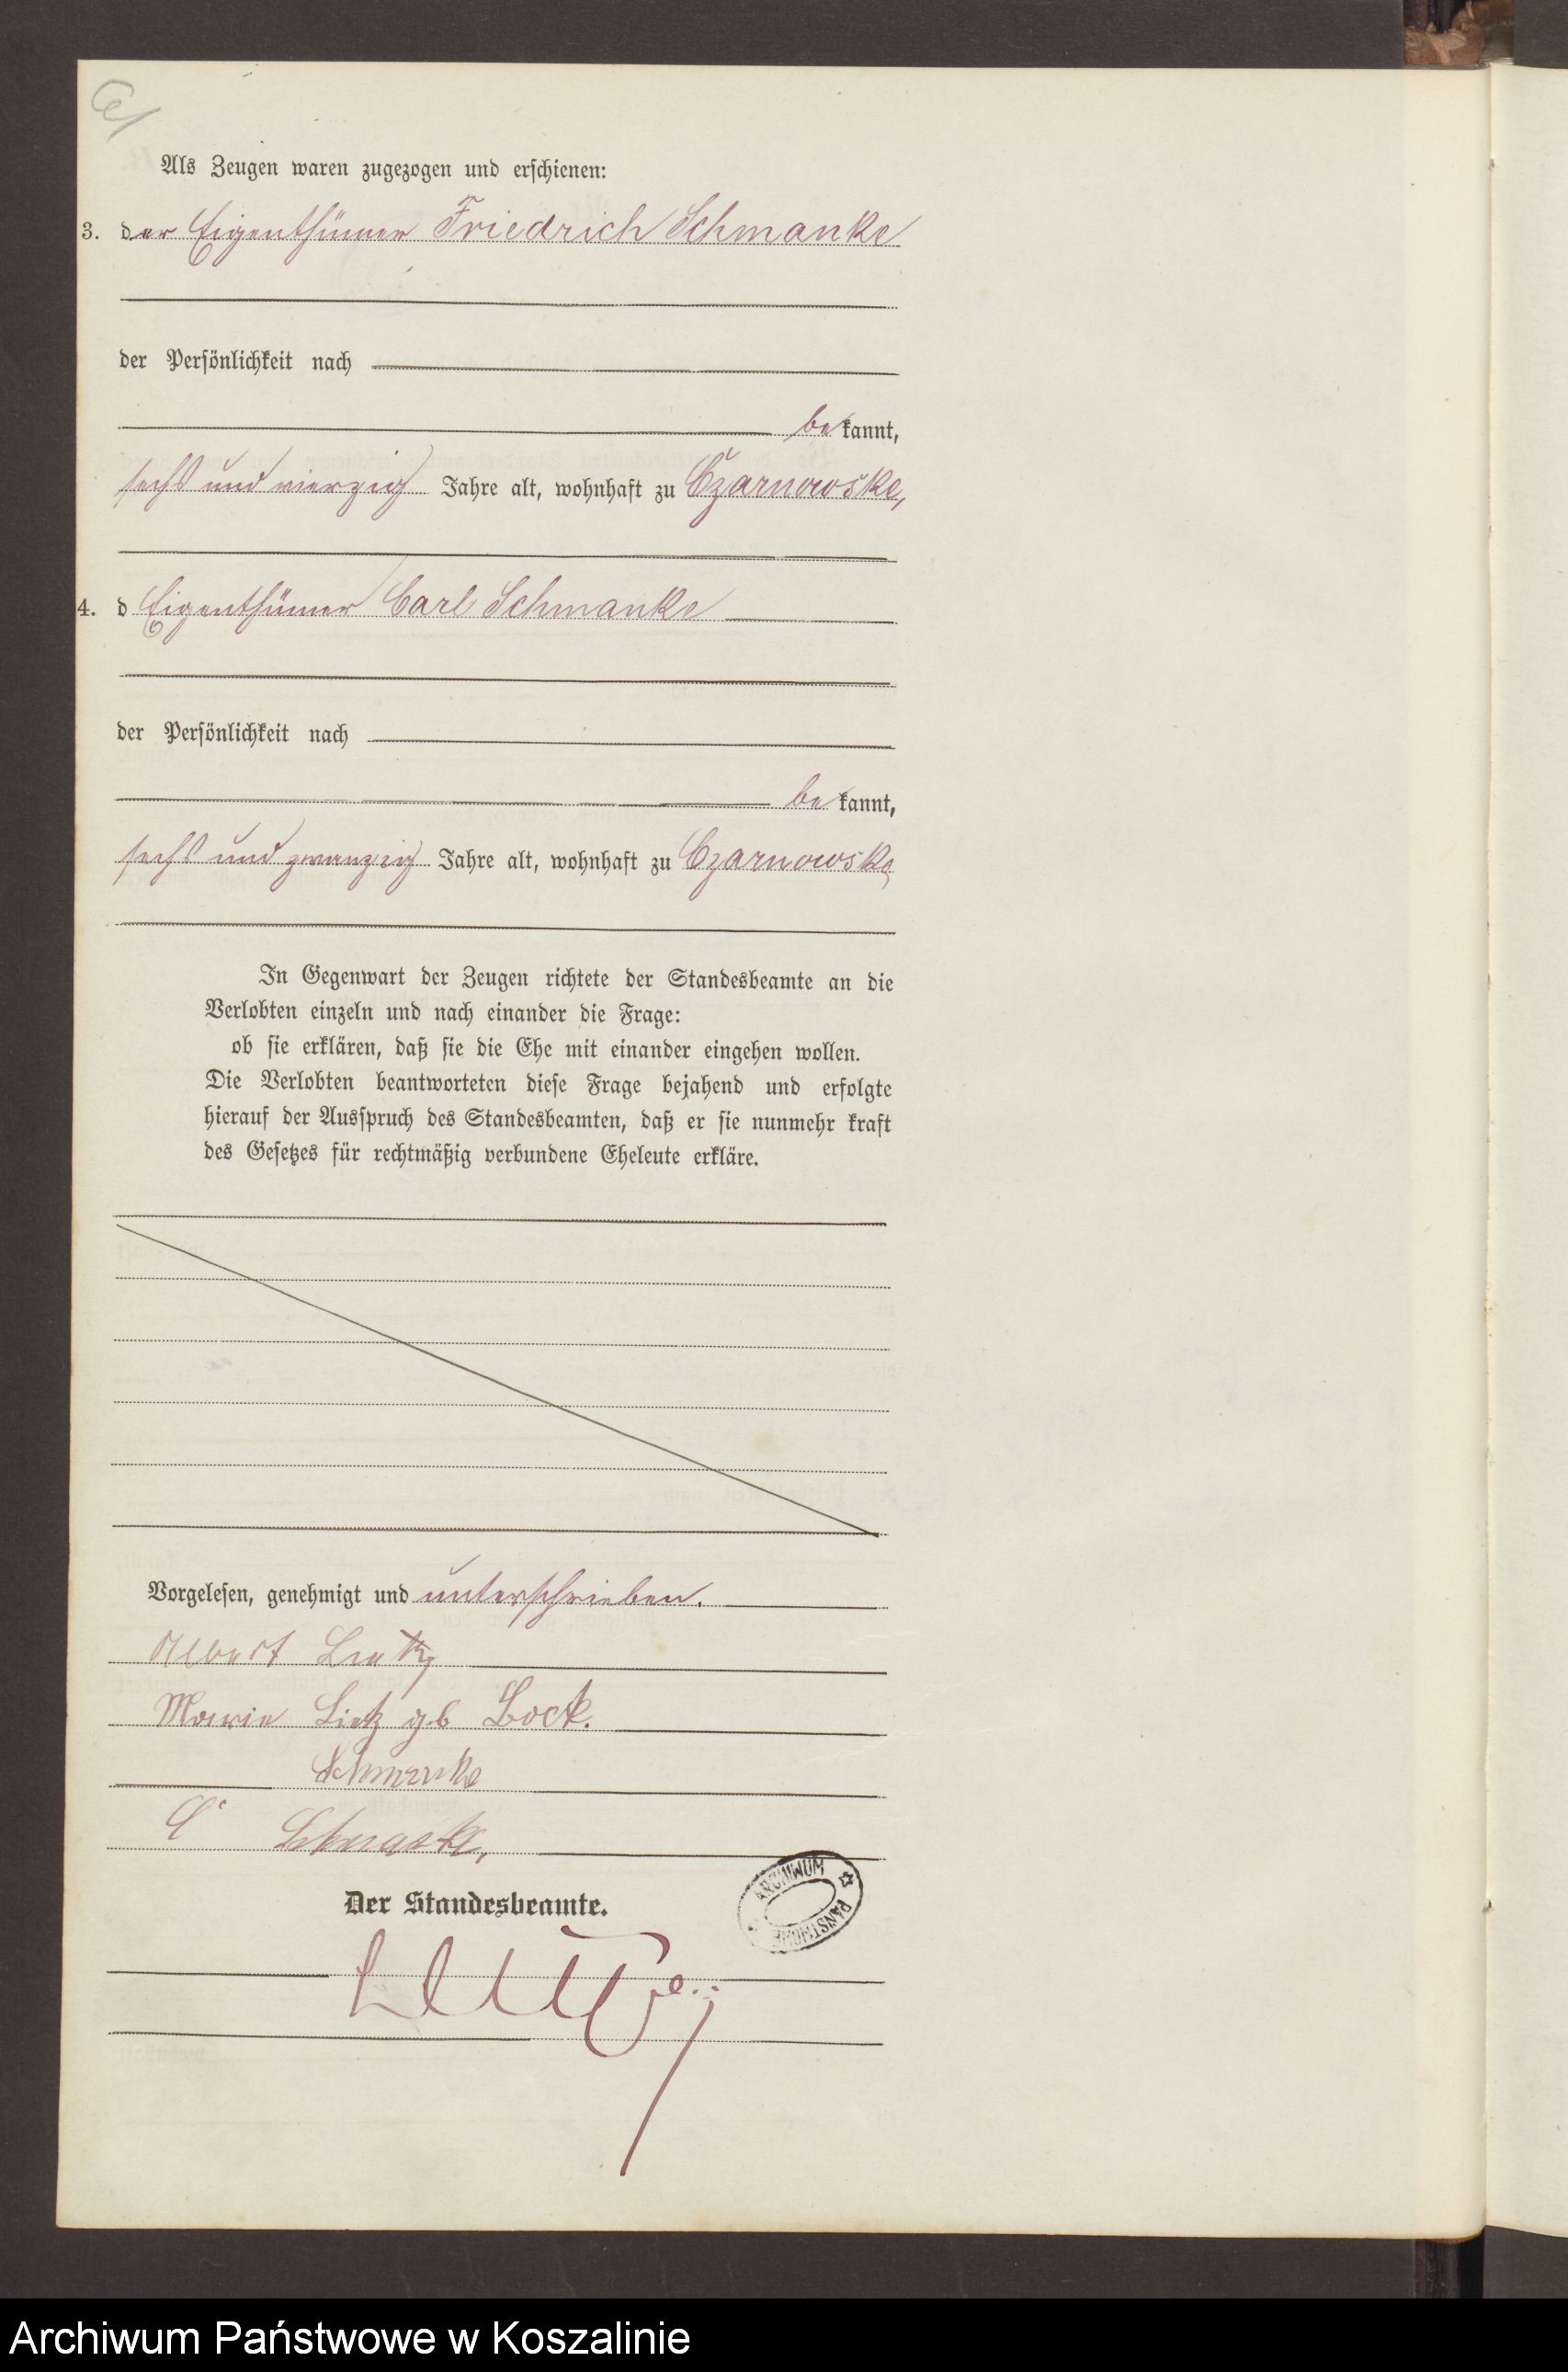 Als Zeugen waren zugezogen und erschienen:
3. der Eigenthümer Friedrich Schmanke
der Persönlichkeit nach
bekannt,
sechs und vierzig Jahre alt, wohnhaft zu Czarnowske,
4. d Eigenthümer Carl Schmanke
der Persönlichkeit nach
bekannt,
sechs und zwanzig Jahre alt, wohnhaft zu Czarnowske,
In Gegenwart der Zeugen richtete der Standesbeamte an die
Verlobten einzeln und nach einander die Frage:
ob sie erklären, daß sie die Ehe mit einander eingehen wollen.
Die Verlobten beantworteten diese Frage bejahend und erfolgte
hierauf der Ausspruch des Standesbeamten, daß er sie nunmehr kraft
des Gesetzes für rechtmäßig verbundene Eheleute erkläre.
Vorgelesen, genehmigt und unterschrieben.
Albert Lietz
Marie Lietz gb Bock.
Schmanke
C Schmanke,
Der Standesbeamte.
ARCHIWUM PAŃSTWOWE
Archiwum Państwowe w Koszalinie